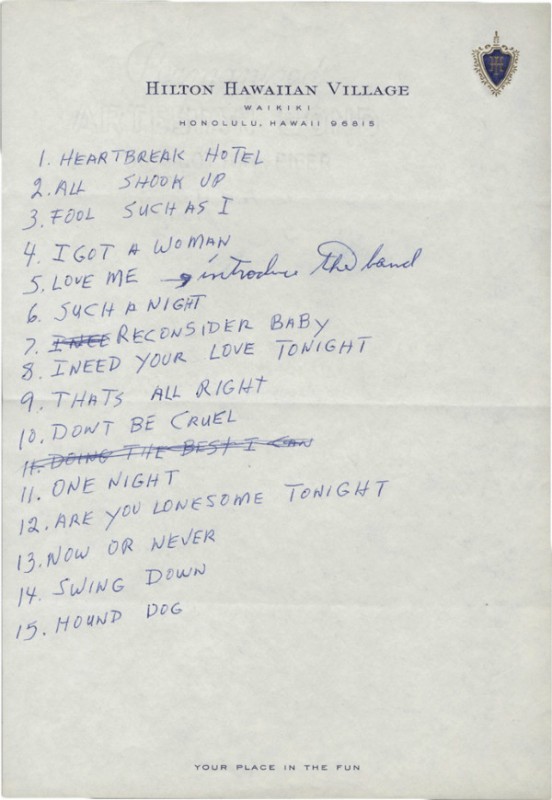 HILTON HAWAIIAN VILLAGE
WAIKIKI
HONOLULU, HAWAII 96815
1. HEARTBREAK HOTEL
2. ALL SHOOK UP
3. FOOL SUCH AS I
4. I GOT A WOMAN
5. LOVE ME → introduce the band
6. SUCH A NIGHT
7. I NEE RECONSIDER BABY
8. I NEED YOUR LOVE TONIGHT
9. THATS ALL RIGHT
10. DONT BE CRUEL
11. DOING THE BEST I CAN
11. ONE NIGHT
12. ARE YOU LONESOME TONIGHT
13. NOW OR NEVER
14. SWING DOWN
15. HOUND DOG
YOUR PLACE IN THE FUN